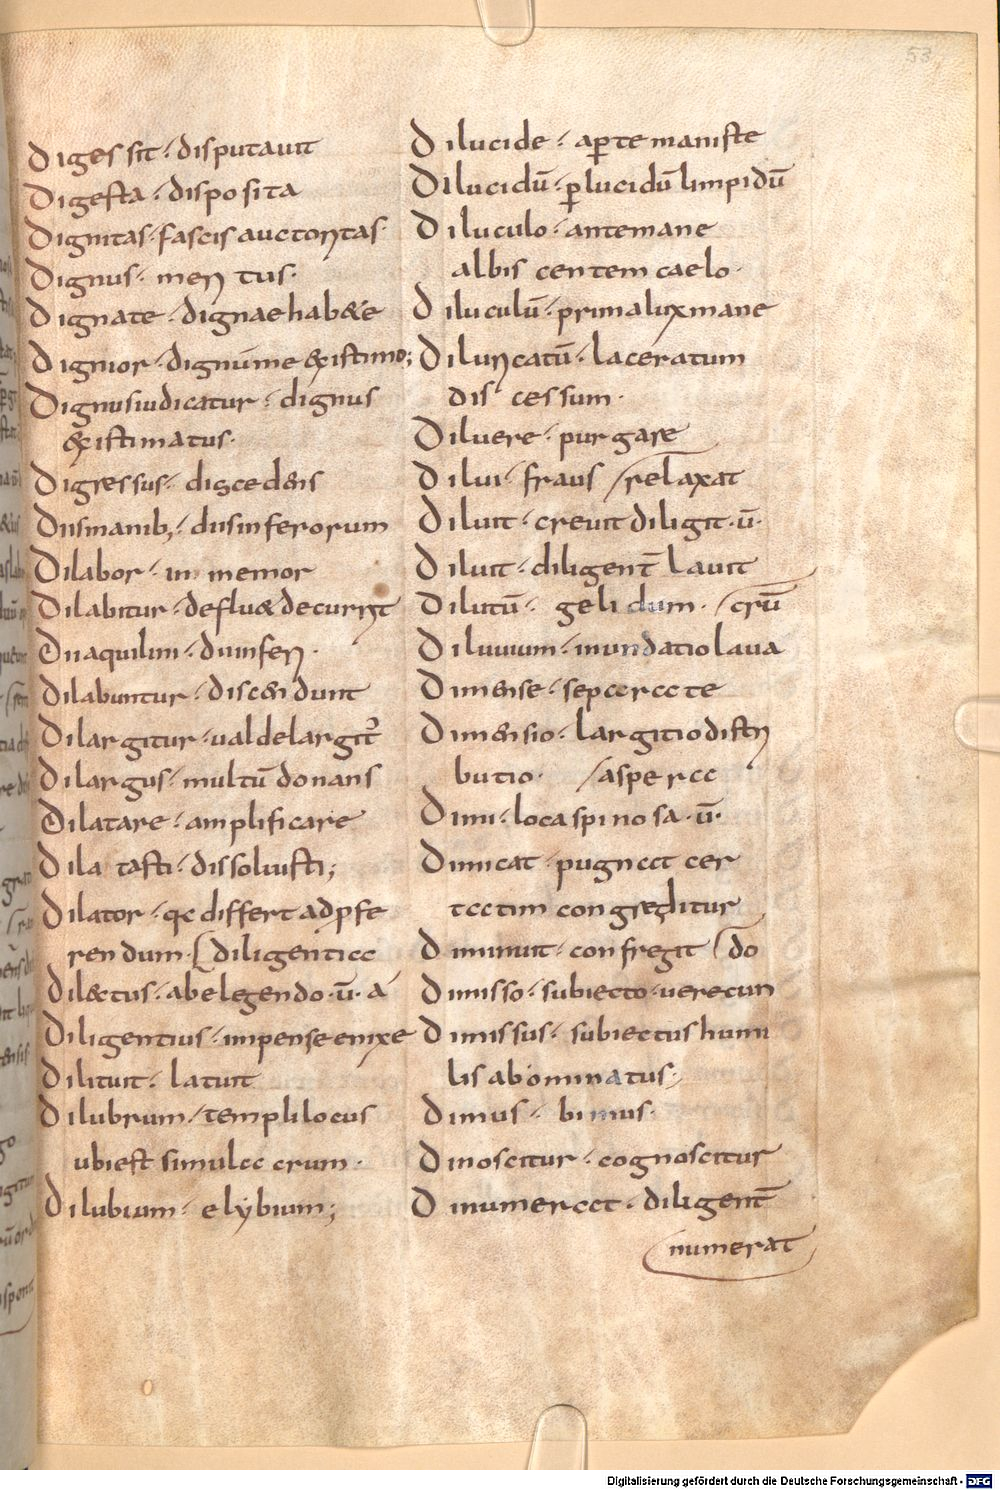 53
Digessit · disputauit
Digesta · disposita
Dignitas · fascis auctoritas ·
Dignus · meri tus ·
Dignate · digne hab&e
Dignior · dignúme &xistimo;
Dignusiudicatur · dignus
&xistimatus ·
Digressus · discedens
Diismanib; · diisinferorum
Dilabor · in memor
Dilabitur · deflu& decurrit
Diiaquilini · diiinferi ·
Dilabuntur · discendunt
Dilargitur · ualdelargit᷑
Dilargus · multū donans
Dilatare · amplificare
Dila tasti · dissoluisti;
Dilator · qc differt adꝓfe
rendum · diligentia
Dil&ctus · abelegendo · ū · a
Diligentius · impense enixe
Dilituit · latuit
Dilubrum · templilocus
ubiest simulacrum ·
Dilubium · elybium;
Dilucide · aꝑte manifte
Dilucidū · ꝑlucidū limpidū
Diluculo · antemane
albis centem caelo ·
Diluculū · primaluxmane
Diluricatū · laceratum
dis cessum ·
Diluere · purgare
Dilui · fraus / relaxat
Diluit · creuit diligit · ū ·
Diluit · diligent̄ lauit
Dilutū · geli dum · / crū
Diluuium · inundatiolaua
Dimense · seperate
Dimensio · largitiodistri
butio · / aspera
Dimi · locaspinosa · ū ·
Dimicat · pugnat cer
tatim congreditur
Diminuit · confregit / do
Dimisso · subiecto · uerecun
Dimissus · subiectushumi
lisabominatus ·
Dimus · bimus ·
Dinoscitur · cognoscitur
Dinumerat · diligent̄
numerat
Digitalisierung gefördert durch die Deutsche Forschungsgemeinschaft - DFG